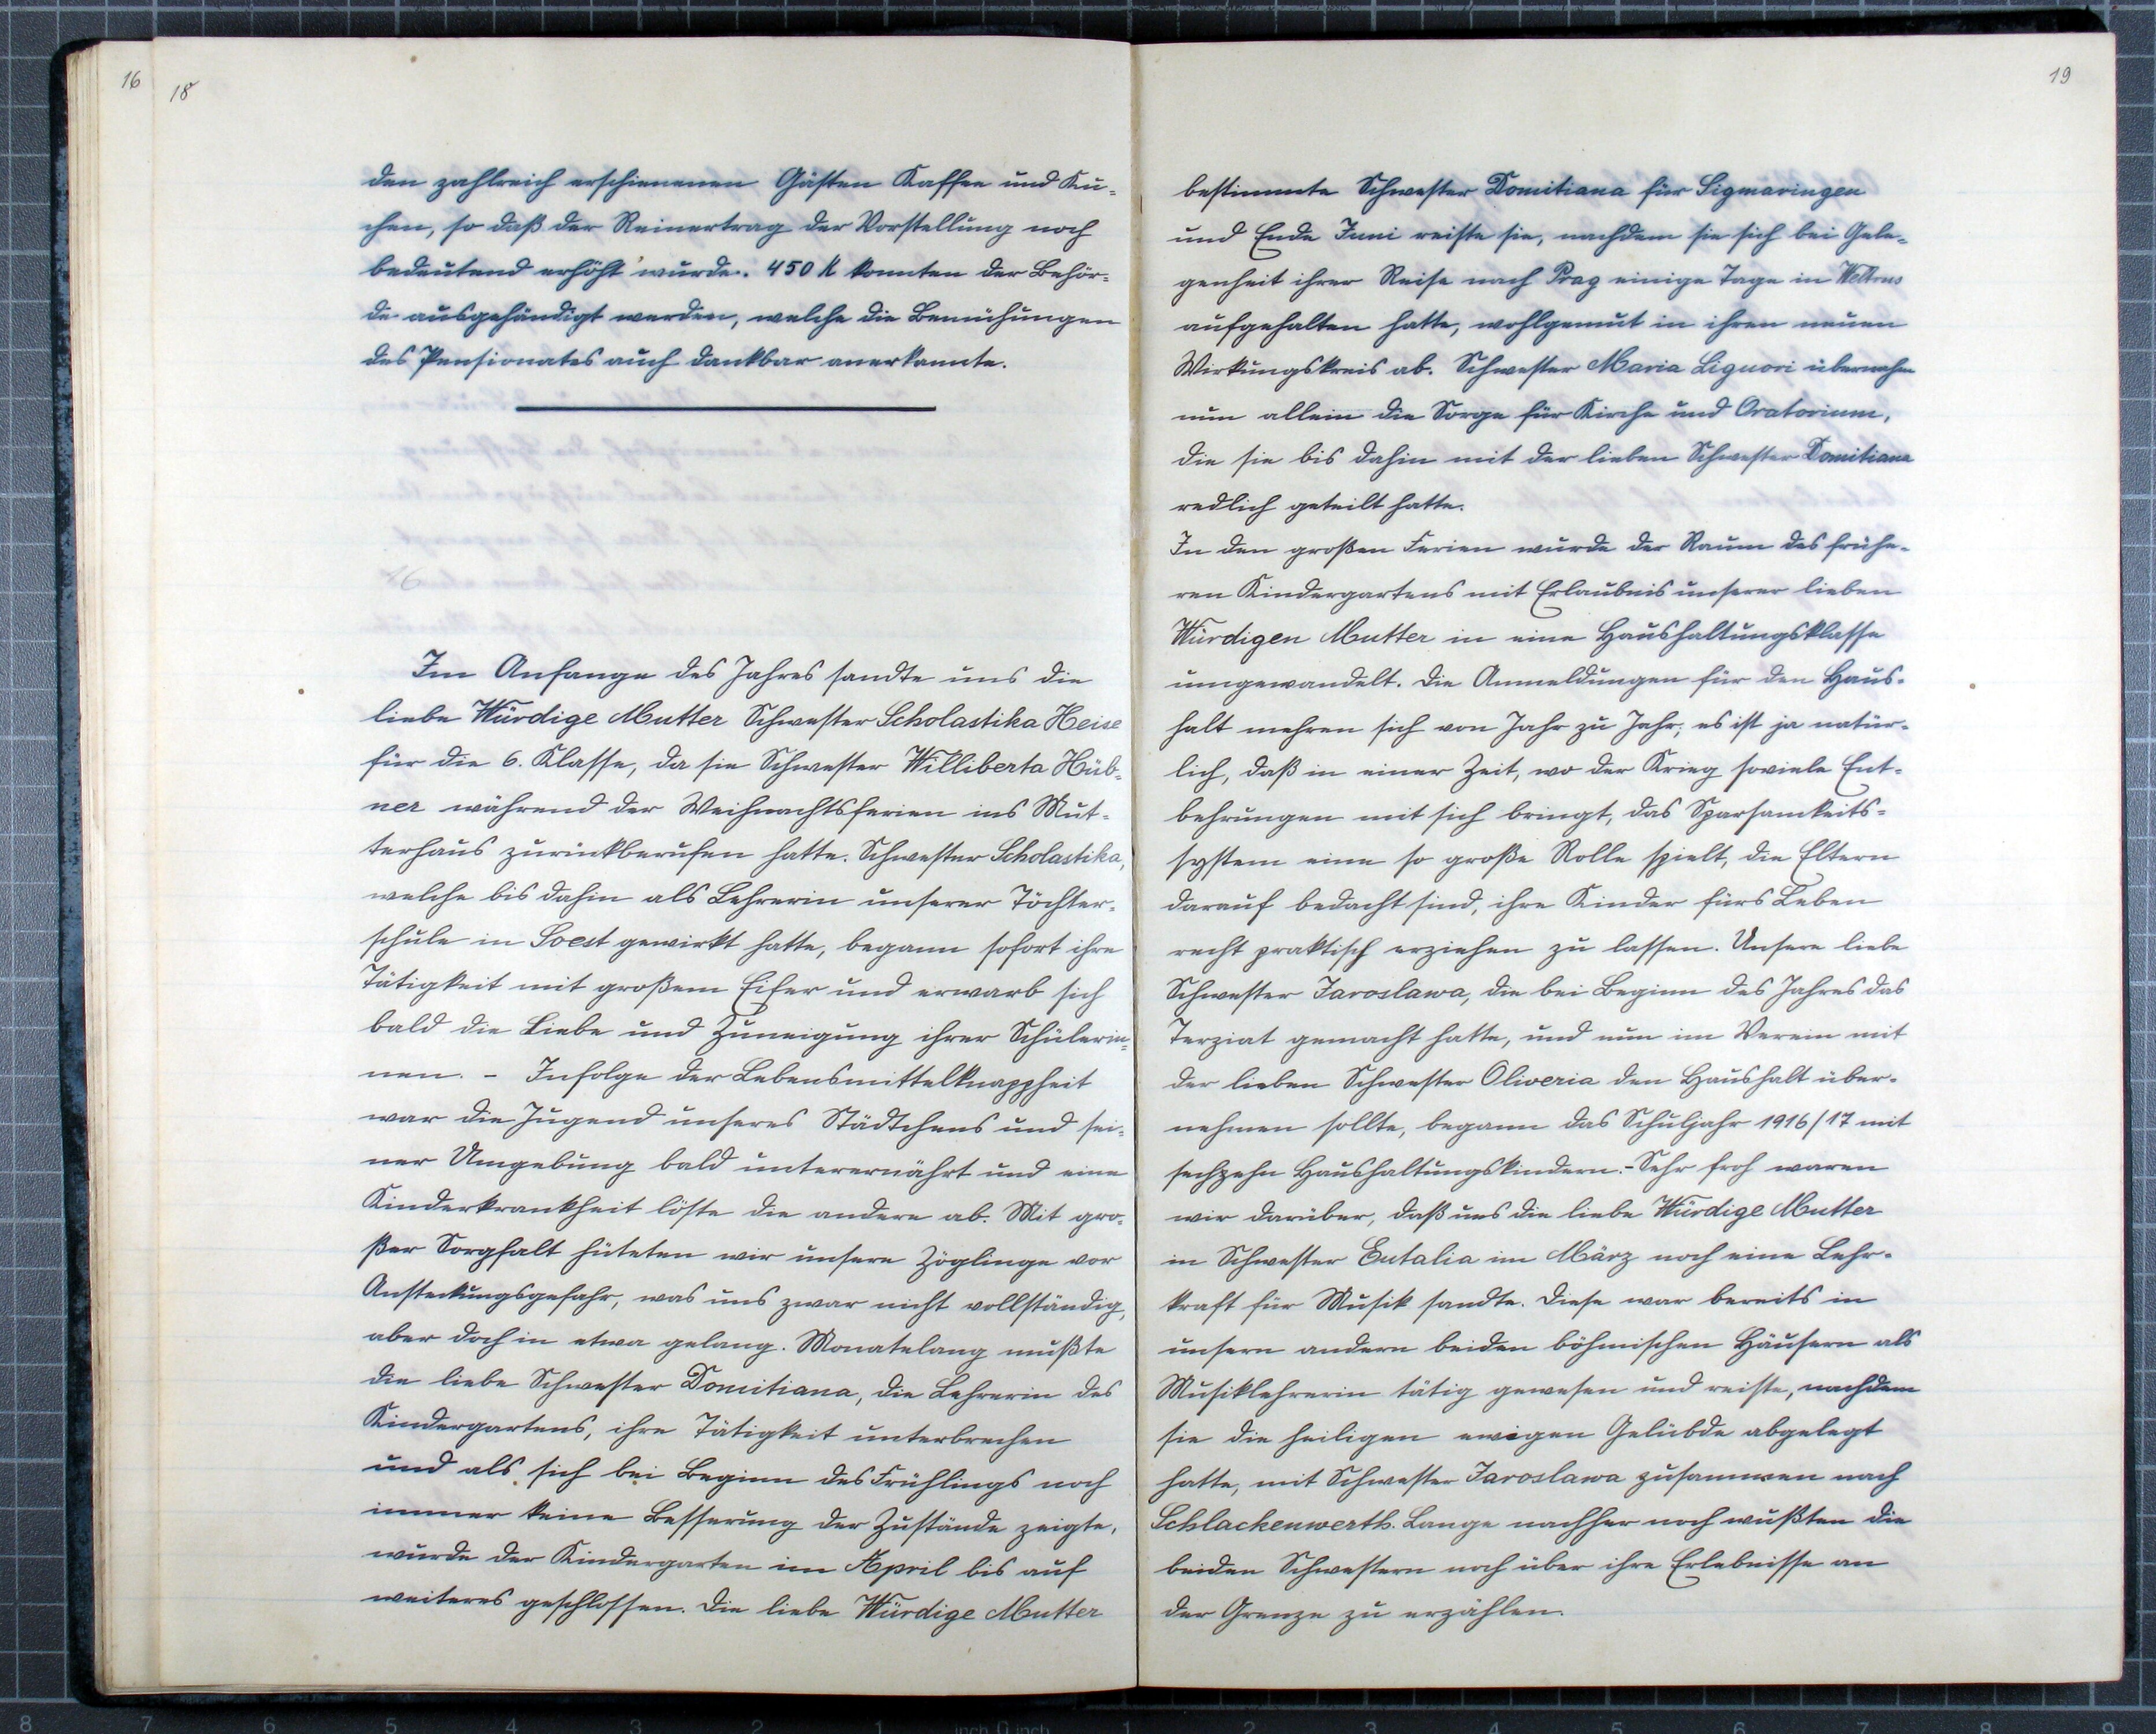 16
18
den zahlreich erschienenen Gästen Kaffee und Ku-
chen, so daß der Reinertrag der Vorstellung noch
bedeutend erhöht wurde. 450 K konnten der Behör-
de ausgehändigt werden, welche die Bemühungen
des Pensionates auch dankbar anerkannte.
Im Anfange des Jahres sandte uns die
liebe Würdige Mutter Schwester Scholastika Heise
für die 6. Klasse, da sie Schwester Williberta Hüb-
ner während der Weihnachtsferien ins Mut-
terhaus zurückberufen hatte. Schwester Scholastika,
welche bis dahin als Lehrerin unserer Töchter-
schule in Soest gewirkt hatte, begann sofort ihre
Tätigkeit mit großem Eifer und erwarb sich
bald die Liebe und Zuneigung ihrer Schülerin-
nen. - Infolge der Lebensmittelknappheit
war die Jugend unseres Städtchens und sei-
ner Umgebung bald unterernährt und eine
Kinderkrankheit löste die andere ab. Mit gro-
ßer Sorgfalt hüteten wir unsere Zöglinge vor
Ansteckungsgefahr, was uns zwar nicht vollständig,
aber doch in etwa gelang. Monatelang mußte
die liebe Schwester Domitiana, die Lehrerin des
Kindergartens, ihre Tätigkeit unterbrechen
und als sich bei Beginn des Frühlings noch
immer keine Besserung der Zustände zeigte,
wurde der Kindergarten im April bis auf
weiteres geschlossen. Die liebe Würdige Mutter
19
bestimmte Schwester Domitiana für Sigmaringen
und Ende Juni reiste sie, nachdem sie sich bei Gele-
genheit ihrer Reise nach Prag einige Tage in Weltrus
aufgehalten hatte, wohlgemut in ihren neuen
Wirkungskreis ab. Schwester Maria Liguori übernahm
nun allein die Sorge für Kirche und Oratorium,
die sie bis dahin mit der lieben Schwester Domitiana
redlich geteilt hatte.
In den großen Ferien wurde der Raum des frühe-
ren Kindergartens mit Erlaubnis unserer lieben
Würdigen Mutter in eine Haushaltungsklasse
umgewandelt. Die Anmeldungen für den Haus-
halt mehren sich von Jahr zu Jahr; es ist ja natür-
lich, daß in einer Zeit, wo der Krieg soviele Ent-
behrungen mit sich bringt, das Sparsamkeits-
system eine so große Rolle spielt, die Eltern
darauf bedacht sind, ihre Kinder fürs Leben
recht praktisch erziehen zu lassen. Unsere liebe
Schwester Jaroslawa, die bei Beginn des Jahres das
Terziat gemacht hatte, und nun im Verein mit
der lieben Schwester Oliveria den Haushalt über-
nehmen sollte, begann das Schuljahr 1916/17 mit
sechzehn Haushaltungskindern. - Sehr froh waren
wir darüber, daß uns die liebe Würdige Mutter
in Schwester Eutalia im März noch eine Lehr-
kraft für Musik sandte. Diese war bereits in
unsern andern beiden böhmischen Häusern als
Musiklehrerin tätig gewesen und reiste, nachdem
sie die heiligen ewigen Gelübde abgelegt
hatte, mit Schwester Jaroslawa zusammen nach
Schlackenwerth. Lange nachher noch wußten die
beiden Schwestern noch über ihre Erlebnisse an
der Grenze zu erzählen.
8 7 6 5 4 3 2 1 inch 0 inch 1 2 3 4 5 6 7 8 9